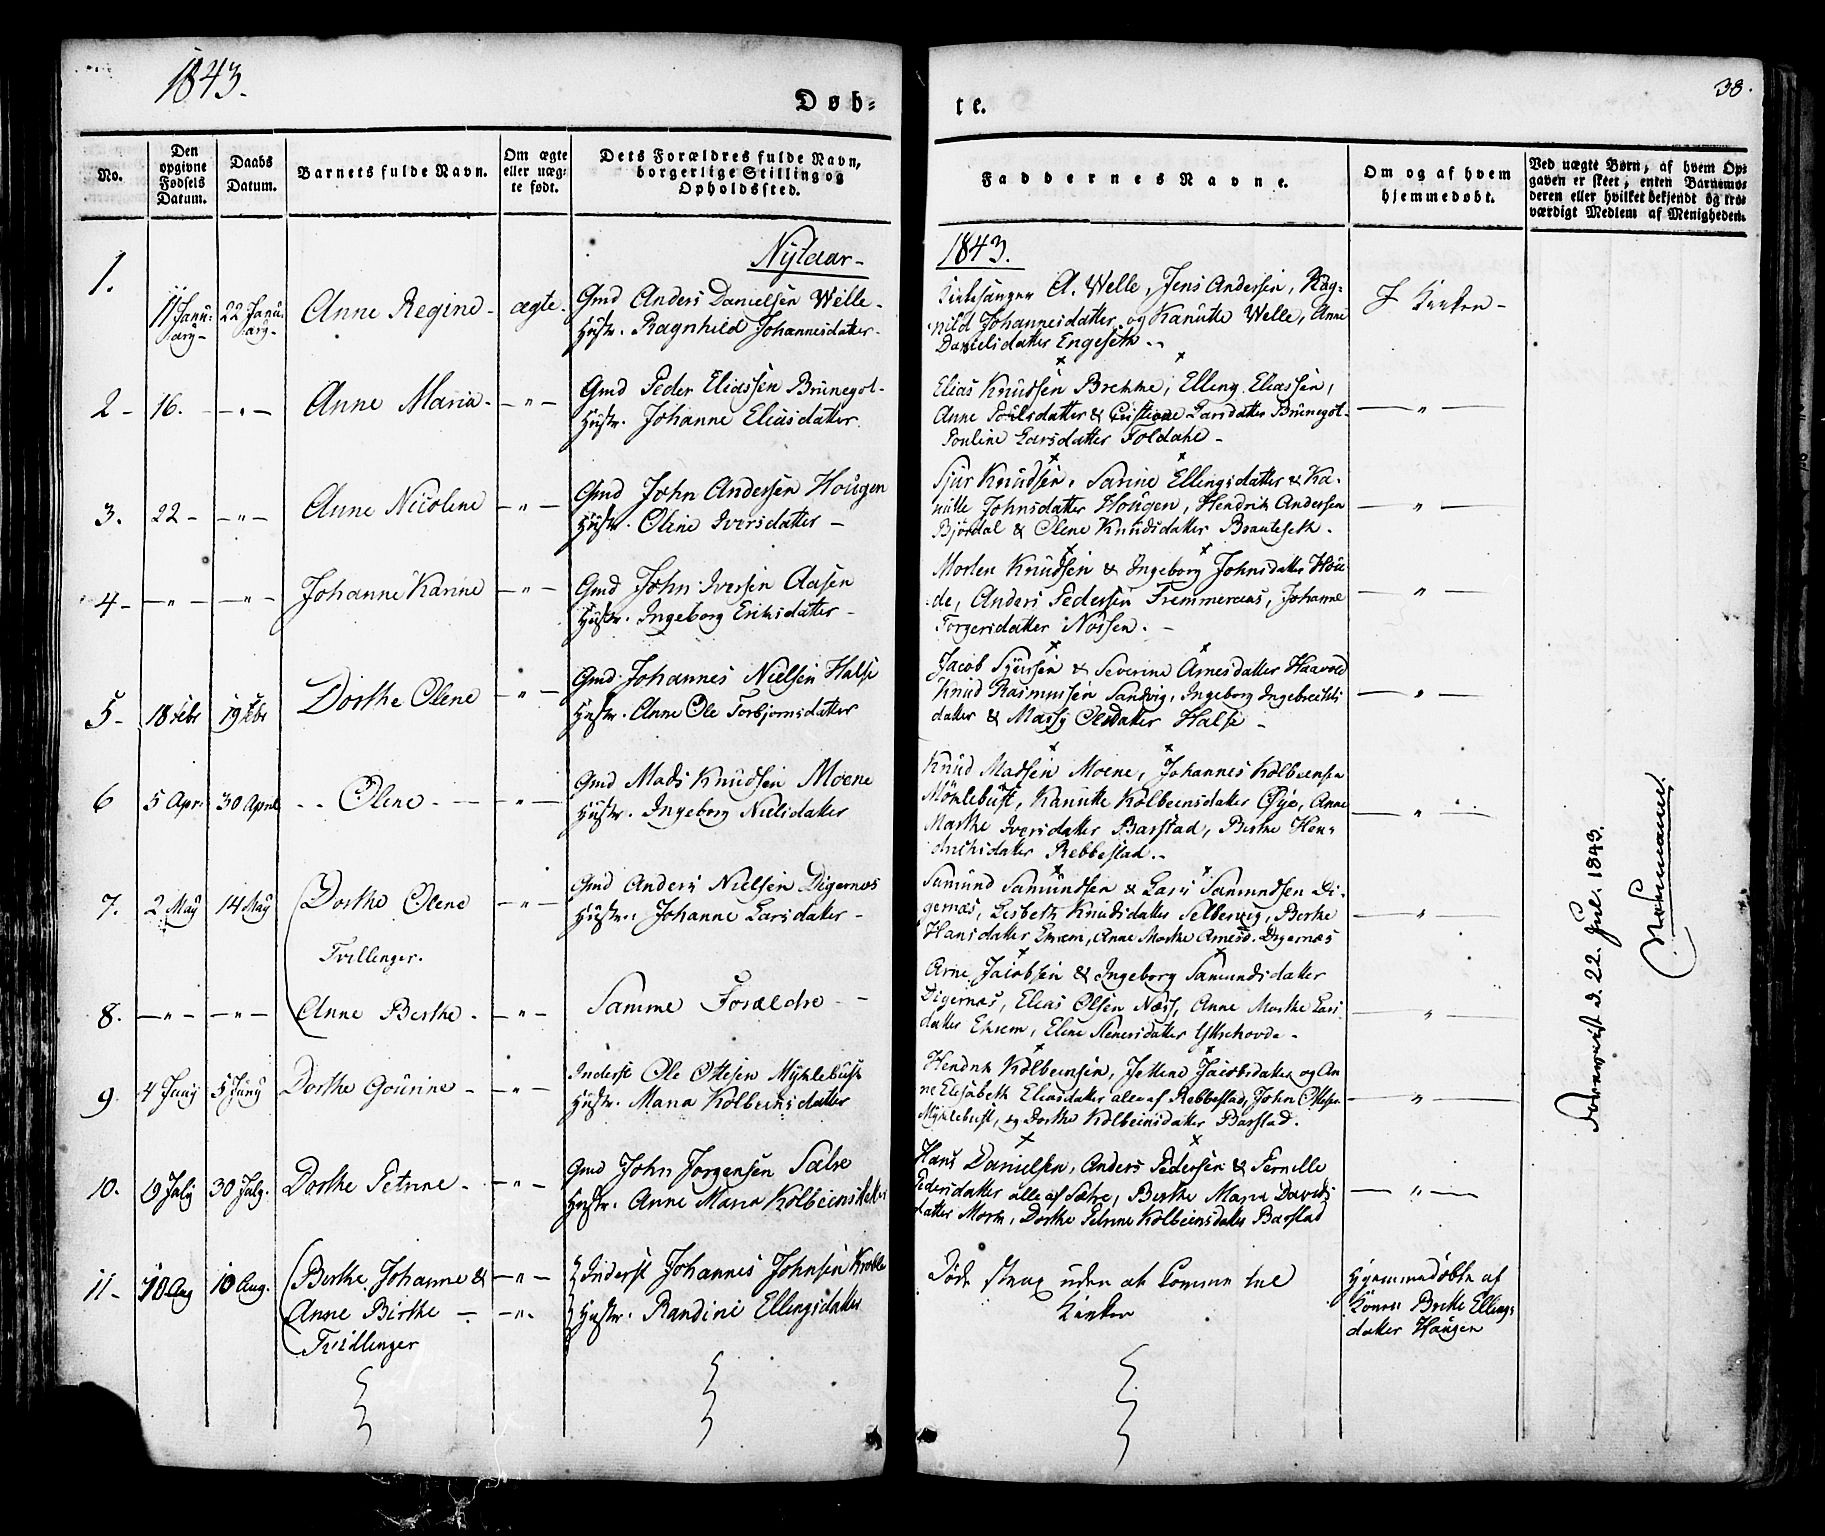 1843.
Døb=
te.
38.
No.
Den
opgivne
Fødsels
Datum.
Daabs
Datum.
Barnets fulde Navn.
Om ægte
eller uæg-
te født.
Dets Forældres fulde Navn,
borgerlige Stilling og
Opholdssted.
Faddernes Navne.
Om og af hvem
hjemmedøbt.
Ved uægte Børn, af hvem Op-
gaven er skeet, enten Barnemo-
deren eller hvilket bekjendt og tro-
værdigt Medlem af Menigheden.
Nytaar-
1843.
1.
11 Janu-
ary-
22 Janu-
ary-
Anne Regine-
ægte.
Gmd Anders Danielsen Welle-
Hustr. Ragnhild Johannesdatter-
Kirkesanger A. Welle, Jens Andersen, Rag-
nild Johannesdatter og Kanutte Welle, Anne
Danielsdatter Engeseth.-
I Kirken-
2- 16. -"- Anne Maria- -"-
Gmd Peder Eliassen Brunegot-
Hustr. Johanne Eliasdatter.
Elias Knudsen Brekke, Elling Eliassen,
Anne Poulsdatter & Cristiane Larsdatter Brunegot-
Pouline Larsdatter Foldahe-
-"-
3. 22- -"- Anne Nicoline -"-
Gmd John Andersen Hougen
Hustr. Oline Iversdatter-
Sjur Knudsen, Sarine Ellingsdatter & Ka-
nutte Johnsdatter Hougen, Hendrik Andersen
Bjørdal & Olene Knudsdatter Brauteseth.
-"-
4- -"- -"- Johanne Karine -"-
Gmd John Iversen Aasen
Hustr. Ingeborg Eriksdatter-
Morten Knudsen & Ingeborg Johnsdatter Hou-
de, Anders Pedersen Fremmeraas, Johanne
Torgersdatter Nossen.-
-"-
5- 18 Febr 19 Febr Dorthe Olene -"-
Gmd Johannes Nielsen Halse
Hustr. Anne Ole Torbjørnsdatter
Jacob Syversen & Severine Arnesdatter Haavold
Knud Rasmussen Sandvig, Ingeborg Ingebrekts
datter & Massy Olsdatter Halse-
-"-
6 5 Apr. 30 April -- Olene- -"-
Gmd Mads Knudsen Moene
Hustr. Ingeborg Nielsdatter
Knud Madsen Moene, Johannes Kolbeensen
Myklebust, Kanutte Kolbeensdatter Øye, Anne
Marthe Iversdatter Barstad, Berthe Hen-
driksdatter Rebbestad.-
-"-
7. 2 May 14 May Dorthe Olene -"-
Tvillinger.
Gmd Anders Nielsen Digernæs
Hustr. Johanne Larsdatter-
Samund Samundsen & Lars Samundsen Di-
gernæs, Lisbeth Knudsdatter Selbervig, Berthe
Hansdatter Ekrem, Anne Marthe Arnesd. Digernæs
-"-
8. -"- -"- Anne Berthe. -"-
Samme Forældre--
Arne Jacobsen & Ingeborg Samundsdatter
Digernæs, Elias Olsen Næss, Anne Marthe Lars-
datter Ekrem, Elene Stenersdatter Ytrehovde-
-"-
9. 4 Juny 5 Juny Dorthe Gourine- -"-
Inderst Ole Ottesen Myklebust
Hustr. Maria Kolbeensdatter
Hendrik Kolbeensen, Jettine Jacobsdatter og An-
ne Elisabeth Eliasdatter alle af Rebbestad, John Ottesen
Myklebust, og Dorthe Kolbeinsdatter Barstad.
-"-
10. 19 July 30 July. Dorthe Petrine- -"-
Gmd John Jorgensen Sætre
Hustr. Anne Maria Kolbeinsdatter
Hans Danielsen, Anders Pedersen & Pernille
Pedersdatter alle af Sætre, Berthe Maria Davids-
datter Mork, Dorthe Petrine Kolbeensdatter Barstad
-"-
11- 10 Aug 10 Aug. Berthe Johanne & -"-
Anne Birthe- -"-
Tvillinger
Inderst Johannes Johnsen Krølle
Hustr. Randine Ellingsdatter
Døde strax uden at komme til
Kirken
Hjemmedøbte af
Konen Brithe Ellings-
datter Haugen
d. 22. Jul. 1843.